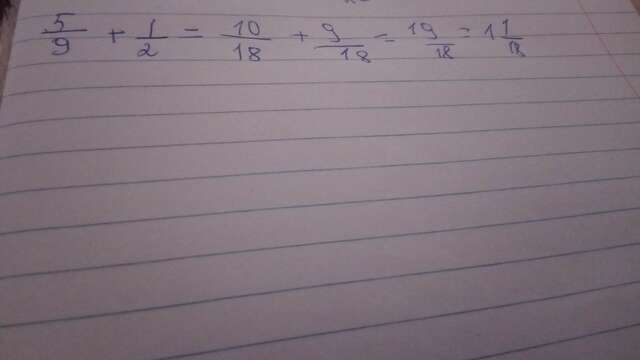 5/9 + 1/2 = 10/18 + 9/18 = 19/18 = 1 1/18